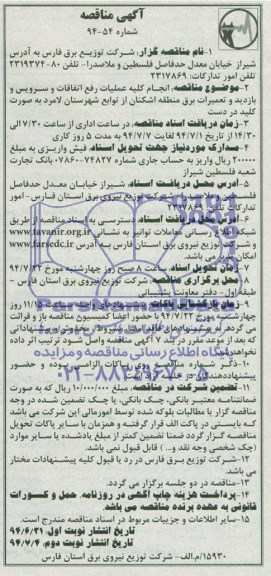 آگهی مناقصه
شماره ۵۴-۹۴
۱-نام مناقصه گزار: شرکت توزیع برق فارس به آدرس
شیراز خیابان معدل حدفاصل فلسطین و ملاصدرا- تلفن ۸۰-۲۳۱۹۳۷۴
تلفن امور تدارکات: ۲۳۱۷۸۶۹
۲-موضوع مناقصه: انجام کلیه عملیات رفع اتفاقات و سرویس و
بازدید و تعمیرات برق منطقه اشکنان از توابع شهرستان لامرد به صورت
کلید در دست
۳-زمان دریافت اسناد مناقصه: در ساعت اداری از ساعت ۷/۳۰ الی
۱۴/۳۰ از تاریخ ۹۴/۷/۱ لغایت ۹۴/۷/۷ به مدت ۵ روز کاری
۴-مدارک موردنیاز جهت تحویل اسناد: فیش واریزی به مبلغ
۲۰۰۰۰۰ ریال واریز به حساب جاری شماره ۷۴۸۲۷-۰۷۸۶۰ بانک تجارت
شعبه فلسطین شیراز
۵-آدرس محل دریافت اسناد: شیراز خیابان معدل حدفاصل
فلسطین و ملاصدرا- شرکت توزیع نیروی برق استان فارس - امور
تدارکات تلفن ۲۳۱۷۸۶۹
۶-آدرس محل دریافت اسناد: دسترسی به اسناد مناقصه از طریق
شبکه اطلاع رسانی معاملات توانیر به نشانی www.tavanir.org.ir
و شرکت توزیع برق استان فارس به آدرس www.farsedc.ir
امکان پذیر می باشد.
۷-زمان تحویل اسناد: ساعت ۸ صبح روز چهارشنبه مورخ ۹۴/۷/۲۲
۸-محل برگزاری مناقصه: شرکت توزیع نیروی برق استان فارس -
طبقه اول- دفتر معاونت پشتیبانی
۹-زمان بازگشایی پاکات: پیشنهادهای واصله در ساعت ۱۱/۱۵ روز
چهارشنبه مورخ ۹۴/۷/۲۲ با حضور اعضا کمیسیون مناقصه باز و قرائت
می گردد. به پیشنهادهای فاقد امضا، مشروط، مخدوش و پیشنهاداتی
که بعد از موعد مقرر در بند ۷ آگهی مناقصه واصل شود ترتیب اثر داده
نخواهد شد.
۱۰-ذکر شماره مناقصه روی پاکات الزامی بوده و حضور
پیشنهاددهندگان در جلسه آزاد است.
۱۱-تضمین شرکت در مناقصه: مبلغ ۱۰/۰۰۰/۰۰۰ ریال که به صورت
ضمانتنامه معتبر بانکی، چک بانکی، یا چک تضمین شده در وجه
مناقصه گزار یا مطالبات بلوکه شده توسط امورمالی این شرکت می باشد
که بایستی در پاکت الف قرار گرفته و همزمان با سایر پاکات تحویل
مناقصه گزار گردد ضمنا تضمین کمتر از مبلغ یادشده یا سایر موارد
(چک شخصی وجه نقد و...) قابل قبول نمی باشد.
۱۲-شرکت توزیع برق فارس در رد یا قبول کلیه پیشنهادات مختار
می باشد.
۱۳-مناقصه در دو جلسه برگزار می گردد.
۱۴-پرداخت هزینه چاپ آگهی در روزنامه، حمل و کسورات
قانونی به عهده برنده مناقصه می باشد.
۱۵-سایر اطلاعات و جزییات مربوط در اسناد مناقصه مندرج است.
تاریخ انتشار نوبت اول: ۹۴/۶/۳۱
تاریخ انتشار نوبت دوم: ۹۴/۷/۴
۱۵۹۳۰/م.الف- شرکت توزیع نیروی برق استان فارس
پایگاه اطلاع رسانی مناقصه و مزایده
۰۲۱-۸۸۳۴۹۶۷۰-۵